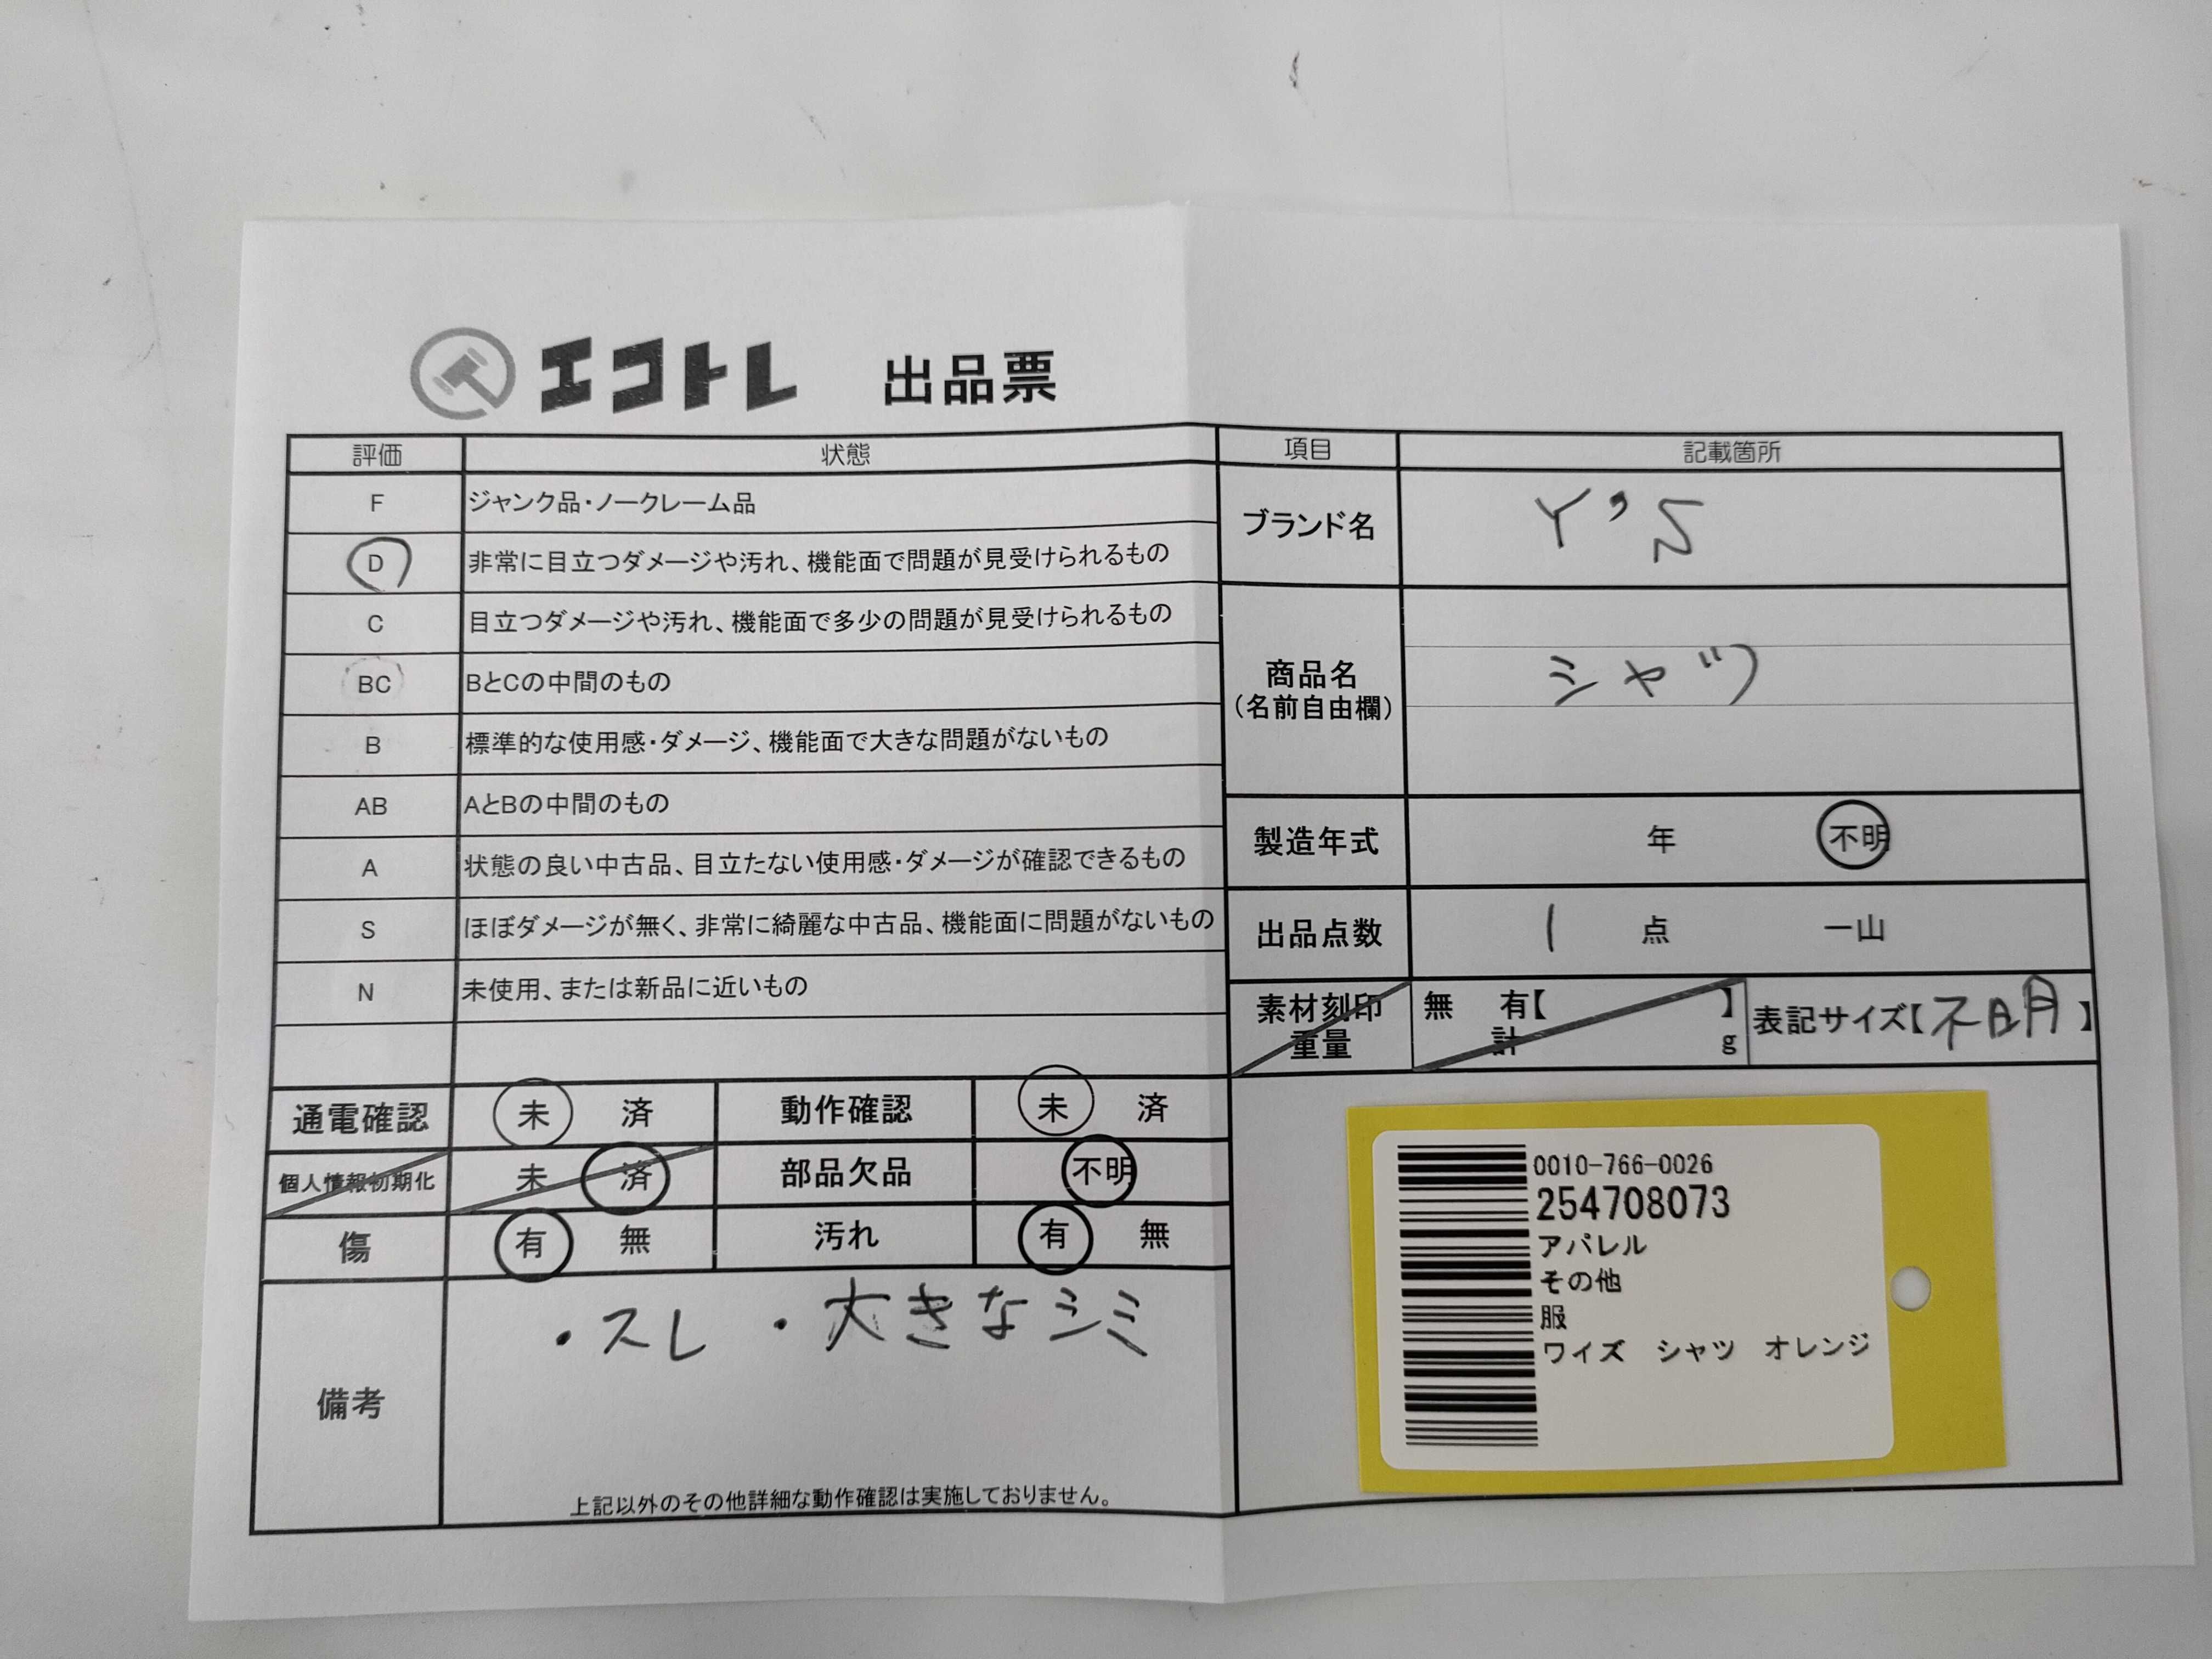 エコトレ 出品票
評価 状態
F ジャンク品・ノークレーム品
D 非常に目立つダメージや汚れ、機能面で問題が見受けられるもの
C 目立つダメージや汚れ、機能面で多少の問題が見受けられるもの
BC BとCの中間のもの
B 標準的な使用感・ダメージ、機能面で大きな問題がないもの
AB AとBの中間のもの
A 状態の良い中古品、目立たない使用感・ダメージが確認できるもの
S ほぼダメージが無く、非常に綺麗な中古品、機能面に問題がないもの
N 未使用、または新品に近いもの
通電確認 未 済 動作確認 未 済
個人情報初期化 未 済 部品欠品 不明
傷 有 無 汚れ 有 無
備考 ・スレ ・大きなシミ
上記以外のその他詳細な動作確認は実施しておりません。
項目 記載箇所
ブランド名 Y's
商品名 シャツ
(名前自由欄)
製造年式 年 不明
出品点数 1 点 一山
素材刻印 無 有【 】
重量 計 g
表記サイズ【不明】
0010-766-0026
254708073
アパレル
その他
服
ワイズ シャツ オレンジ